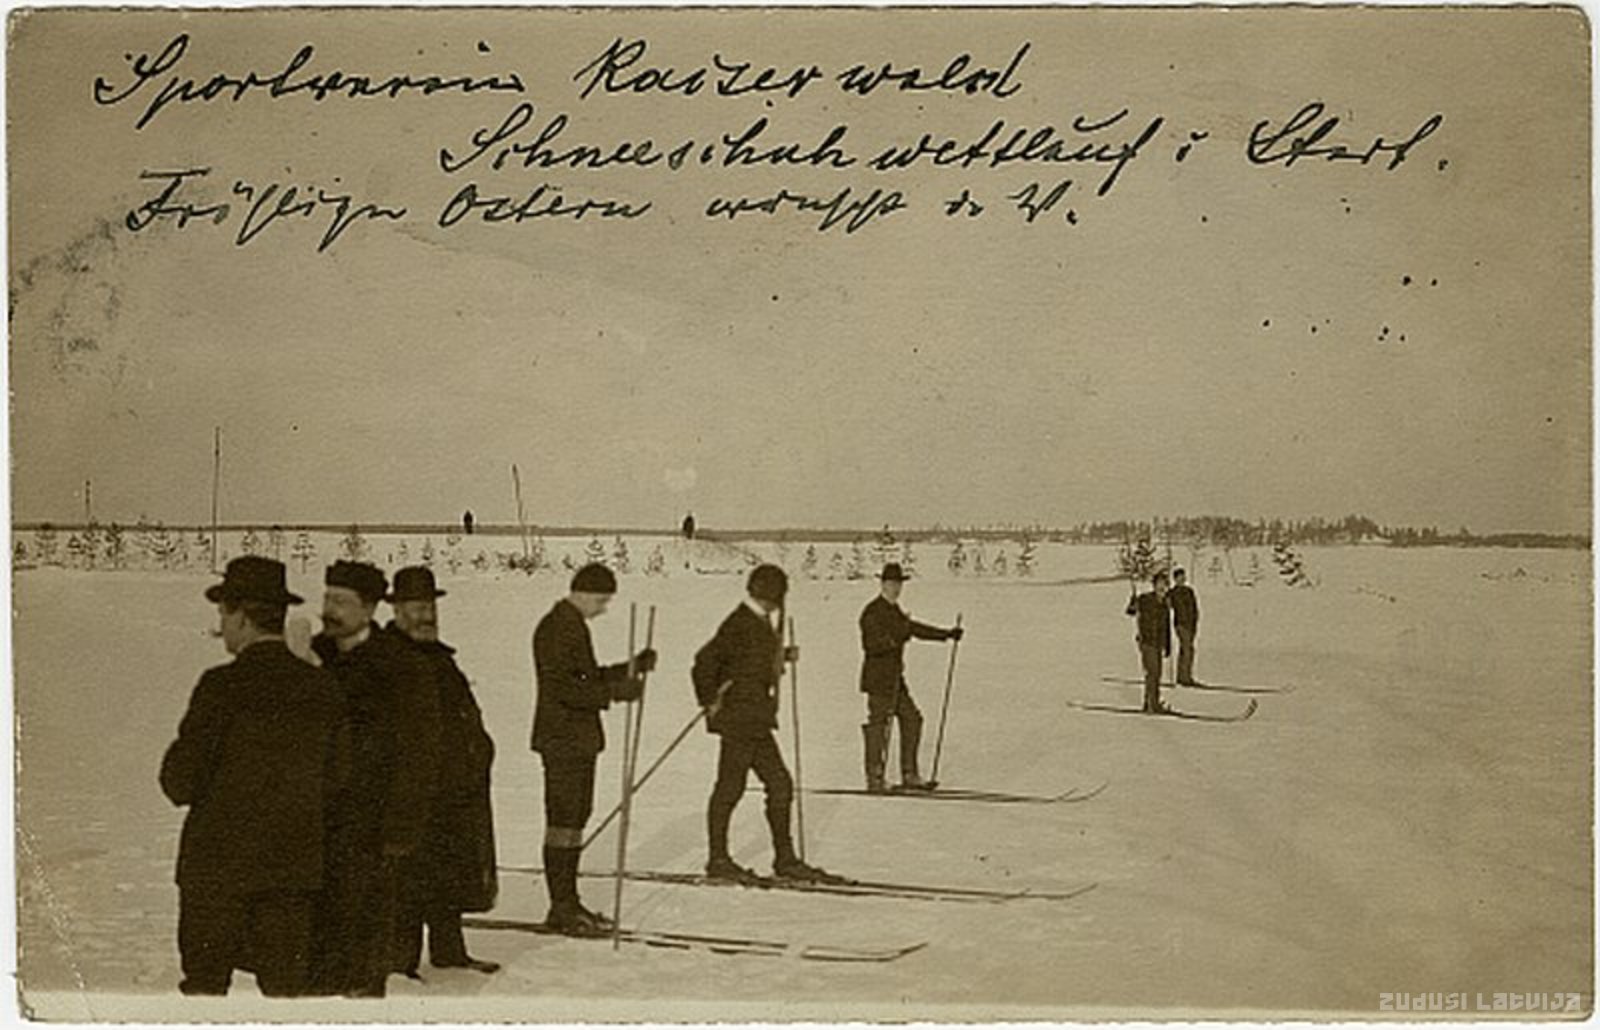 Sportverein Kaiserwald
Schneeschuhwettlauf i Start.
Fröhlige Ostern wünscht d. V.
ZUDUSI LATVIJA